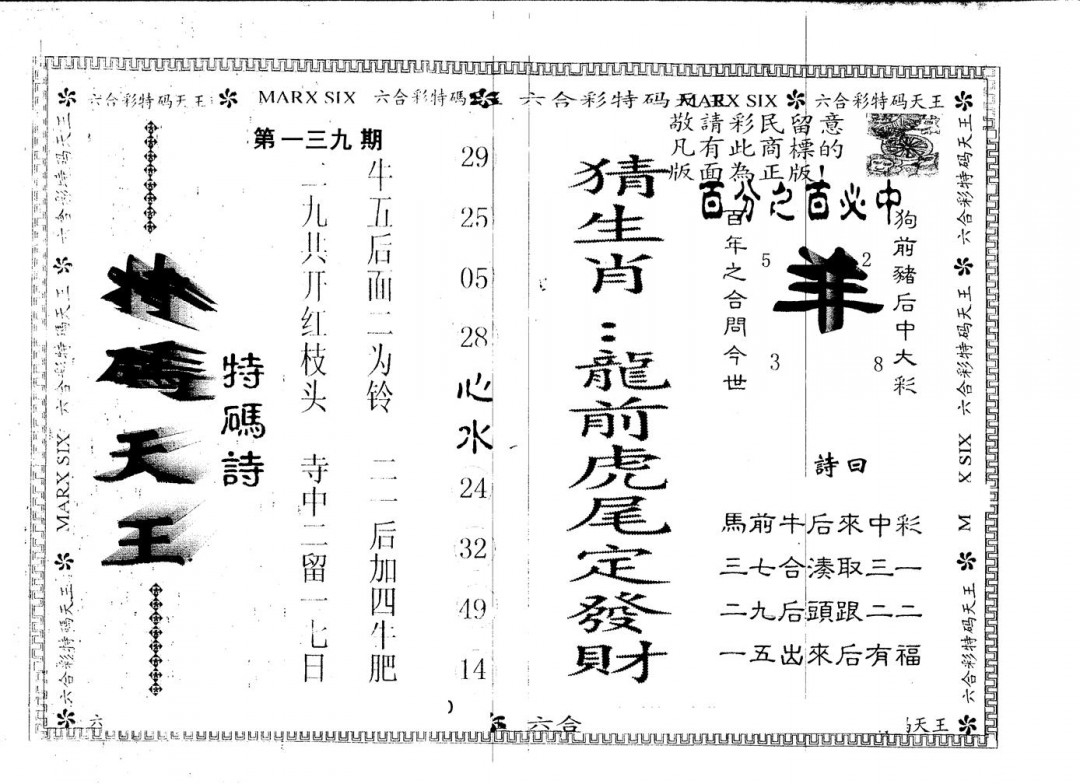 六合彩特码天王
MARX SIX
六合彩特码
六合彩特码天
MARX SIX
六合彩特码天王
敬請彩民留意
凡有此商標的
版面為正版!
百分之百必中
狗前豬后中大彩
羊
5
2
3
8
百年之合問今世
詩曰
馬前牛后來中彩
三七合湊取三一
二九后頭跟二二
一五出來后有福
猜生肖：龍前虎尾定發財
29
25
05
28
心水
24
32
49
14
第一三九期
牛五后面二为铃 二一后加四牛肥
九共开红枝头 寺中二留一七日
特碼詩
特碼天王
六合彩特码天王
六合彩特码天王
MARX SIX
六合彩特码天王
六合彩特码天王
六合彩特码天王
六合彩特码天王
X SIX
M
六合彩特码天王
六
六合
天王